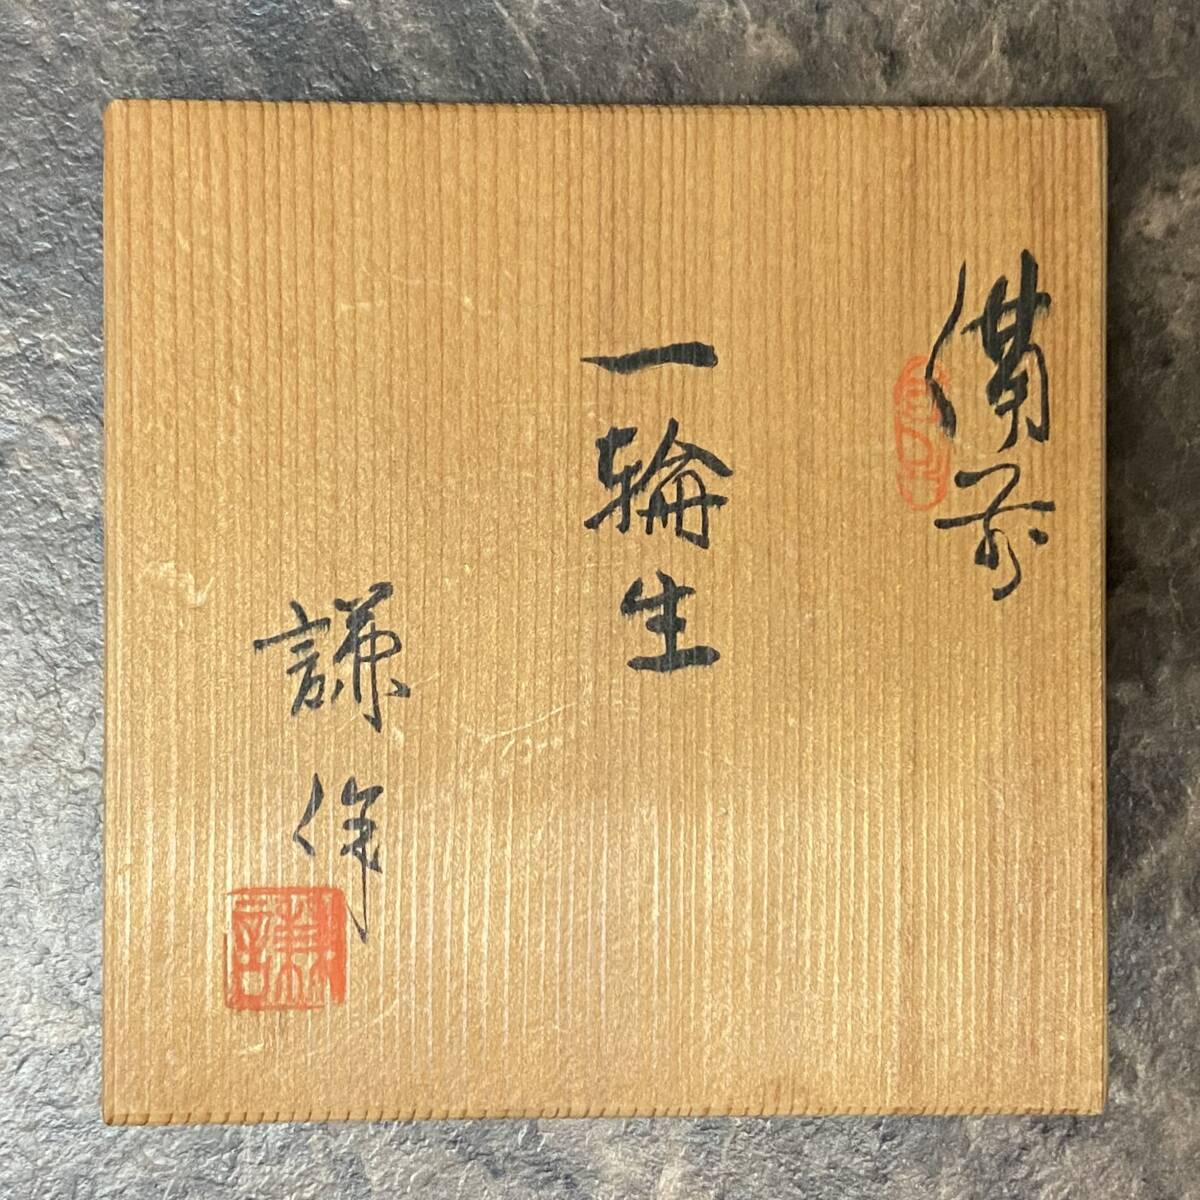 備前
一輪生
謙作
謙